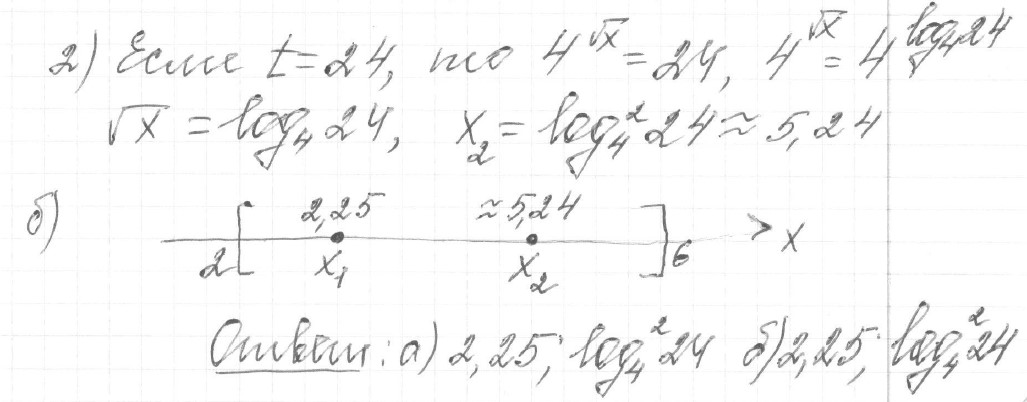 2) Если t=24, то 4^√x = 24, 4^√x = 4^log₄24
√x = log₄24, x₂ = log₄²24 ≈ 5,24
б) 2,25 ≈5,24
2 x₁ x₂ 6 x
Ответ: а) 2,25; log₄²24 б) 2,25; log₄²24